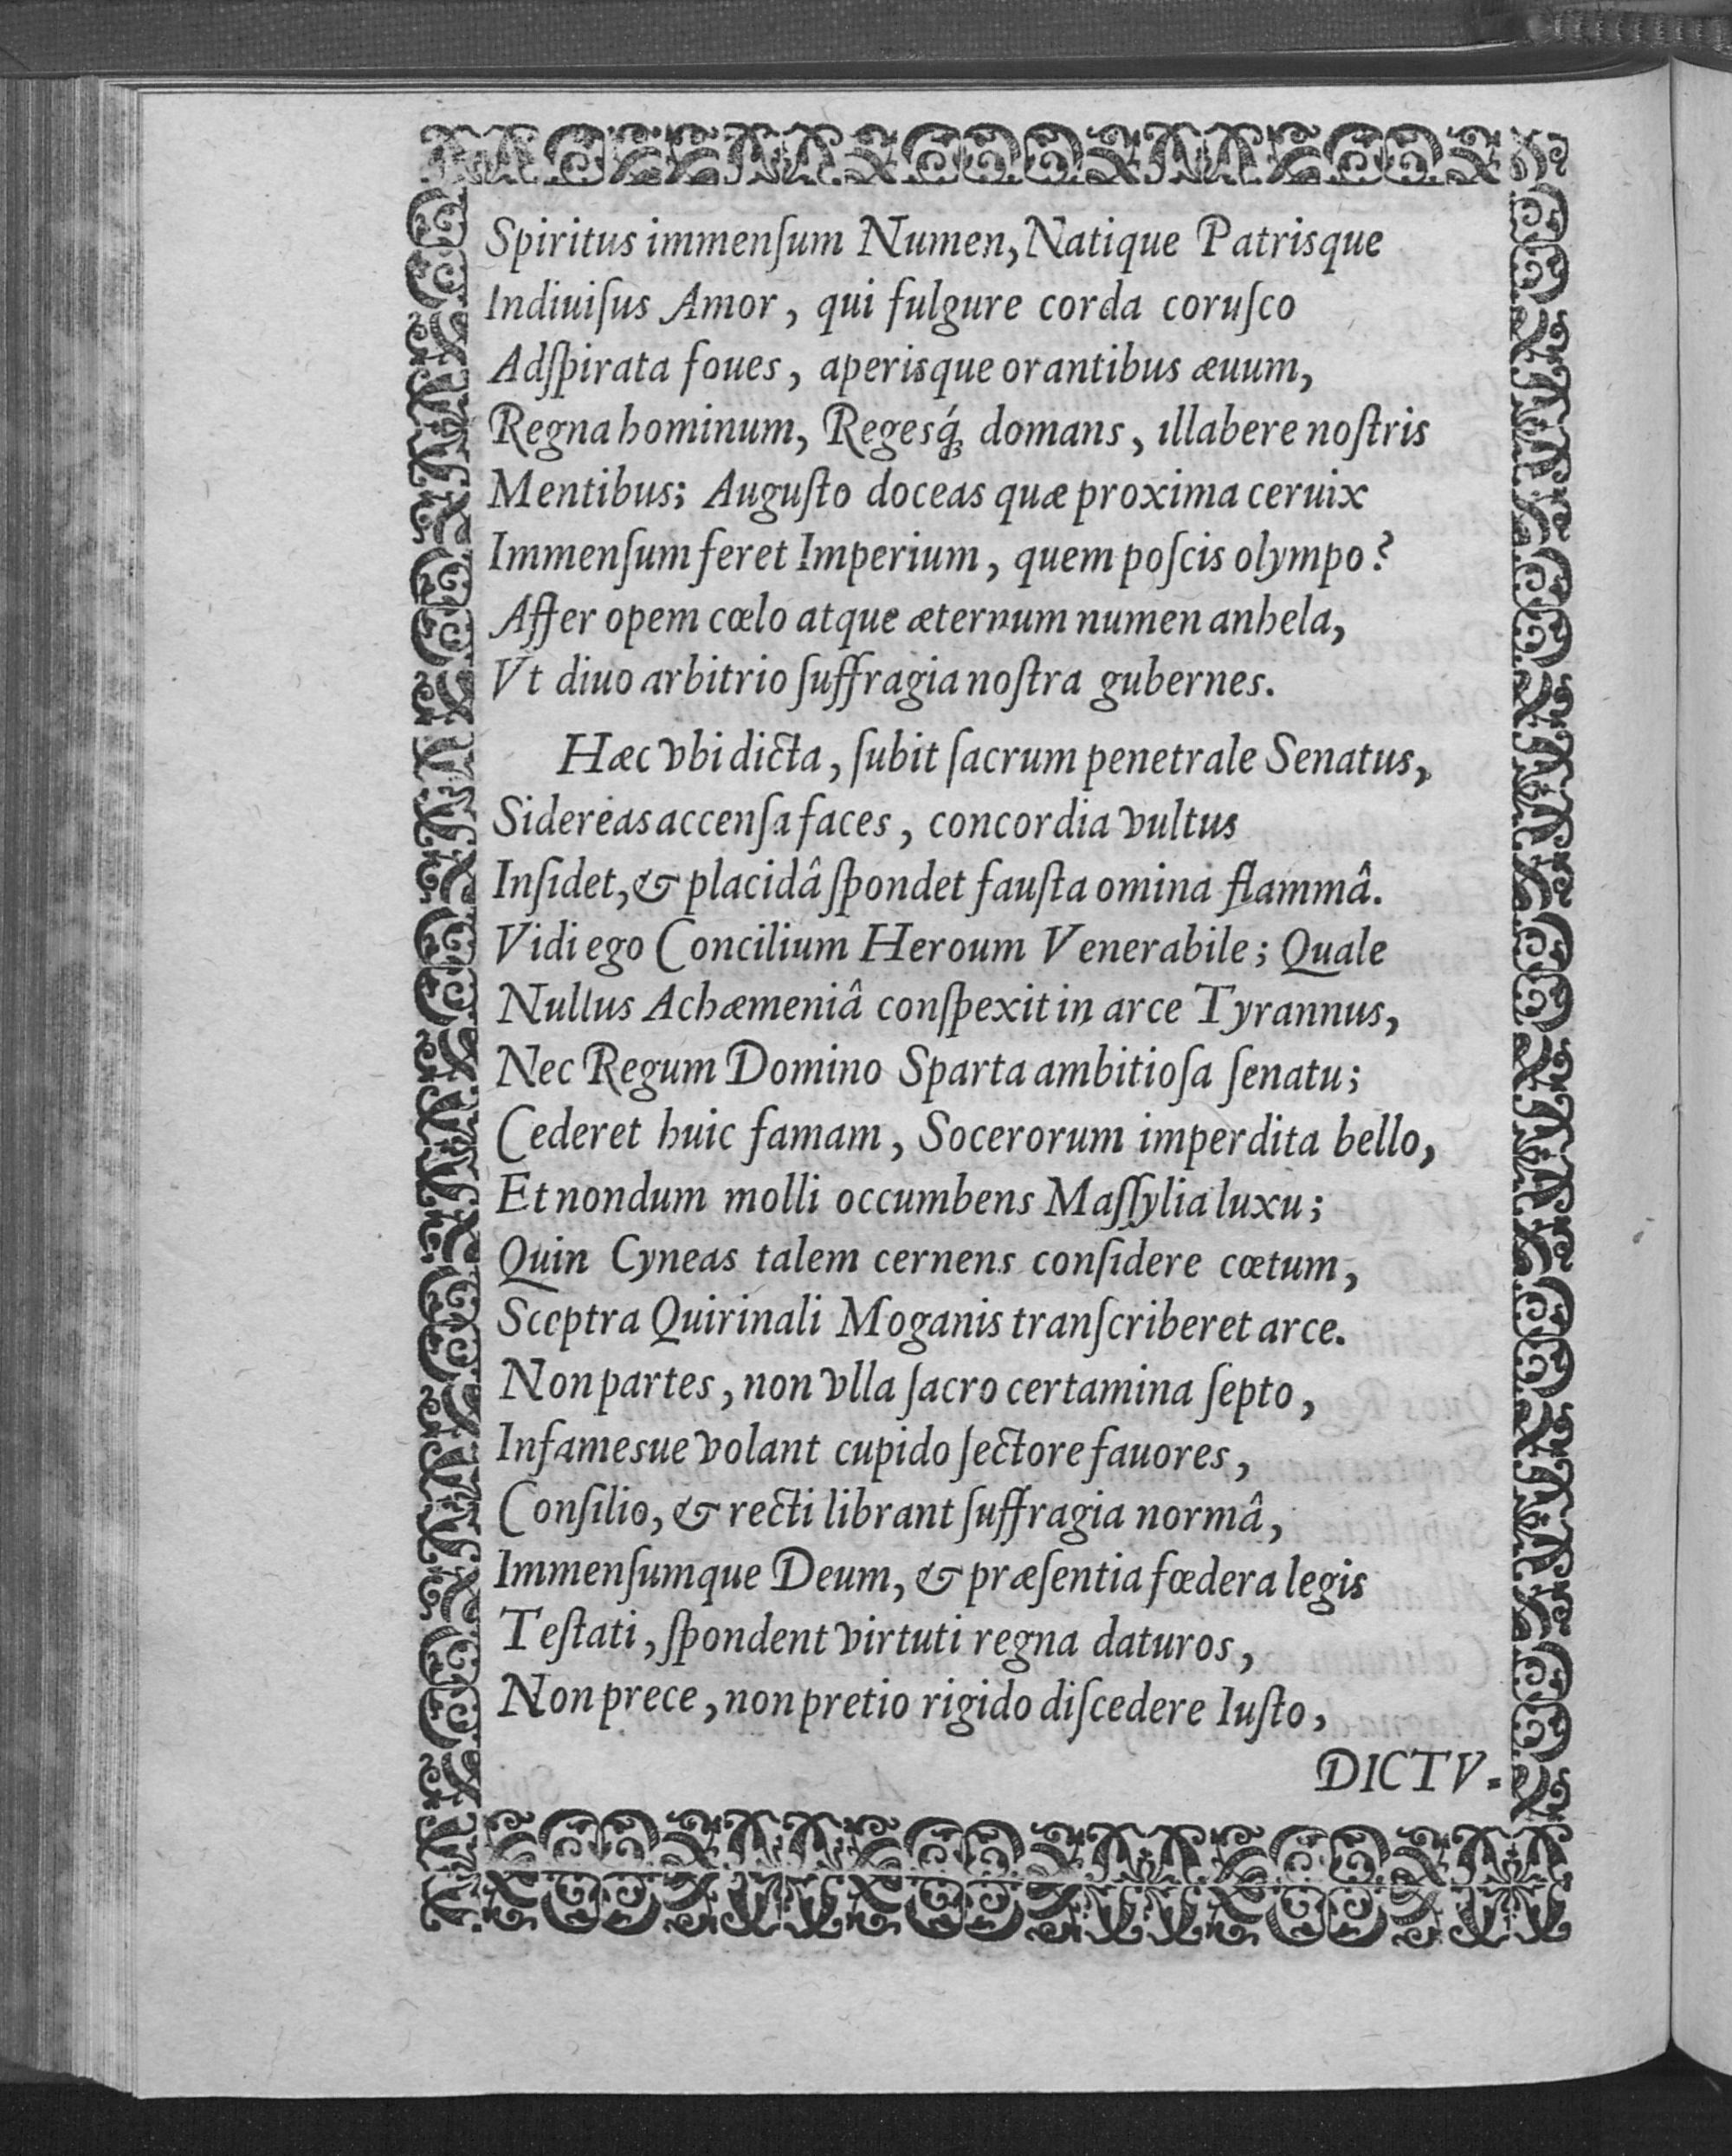 Spiritus immenſum Numen, Natique Patrisque
Indiuiſus Amor, qui fulgure corda coruſco
Adſpirata foues, aperisque orantibus æuum,
Regna hominum, Regesq́; domans, illabere noſtris
Mentibus; Auguſto doceas quæ proxima ceruix
Immenſum feret Imperium, quem poſcis olympo?
Affer opem cœlo atque æternum numen anhela,
Vt diuo arbitrio ſuffragia noſtra gubernes.
Hæc vbi dicta, ſubit ſacrum penetrale Senatus,
Sidereas accenſa faces, concordia vultus
Inſidet, & placidâ ſpondet fauſta omina flammâ.
Vidi ego Concilium Heroum Venerabile; Quale
Nullus Achæmeniâ conſpexit in arce Tyrannus,
Nec Regum Domino Sparta ambitioſa ſenatu;
Cederet huic famam, Socerorum imperdita bello,
Et nondum molli occumbens Maſſylia luxu;
Quin Cyneas talem cernens conſidere cœtum,
Sceptra Quirinali Moganis tranſcriberet arce.
Non partes, non vlla ſacro certamina ſepto,
Infamesue volant cupido ſectore fauores,
Conſilio, & recti librant ſuffragia normâ,
Immenſumque Deum, & præſentia fœdera legis
Teſtati, ſpondent virtuti regna daturos,
Non prece, non pretio rigido diſcedere Iuſto,
DICTV-